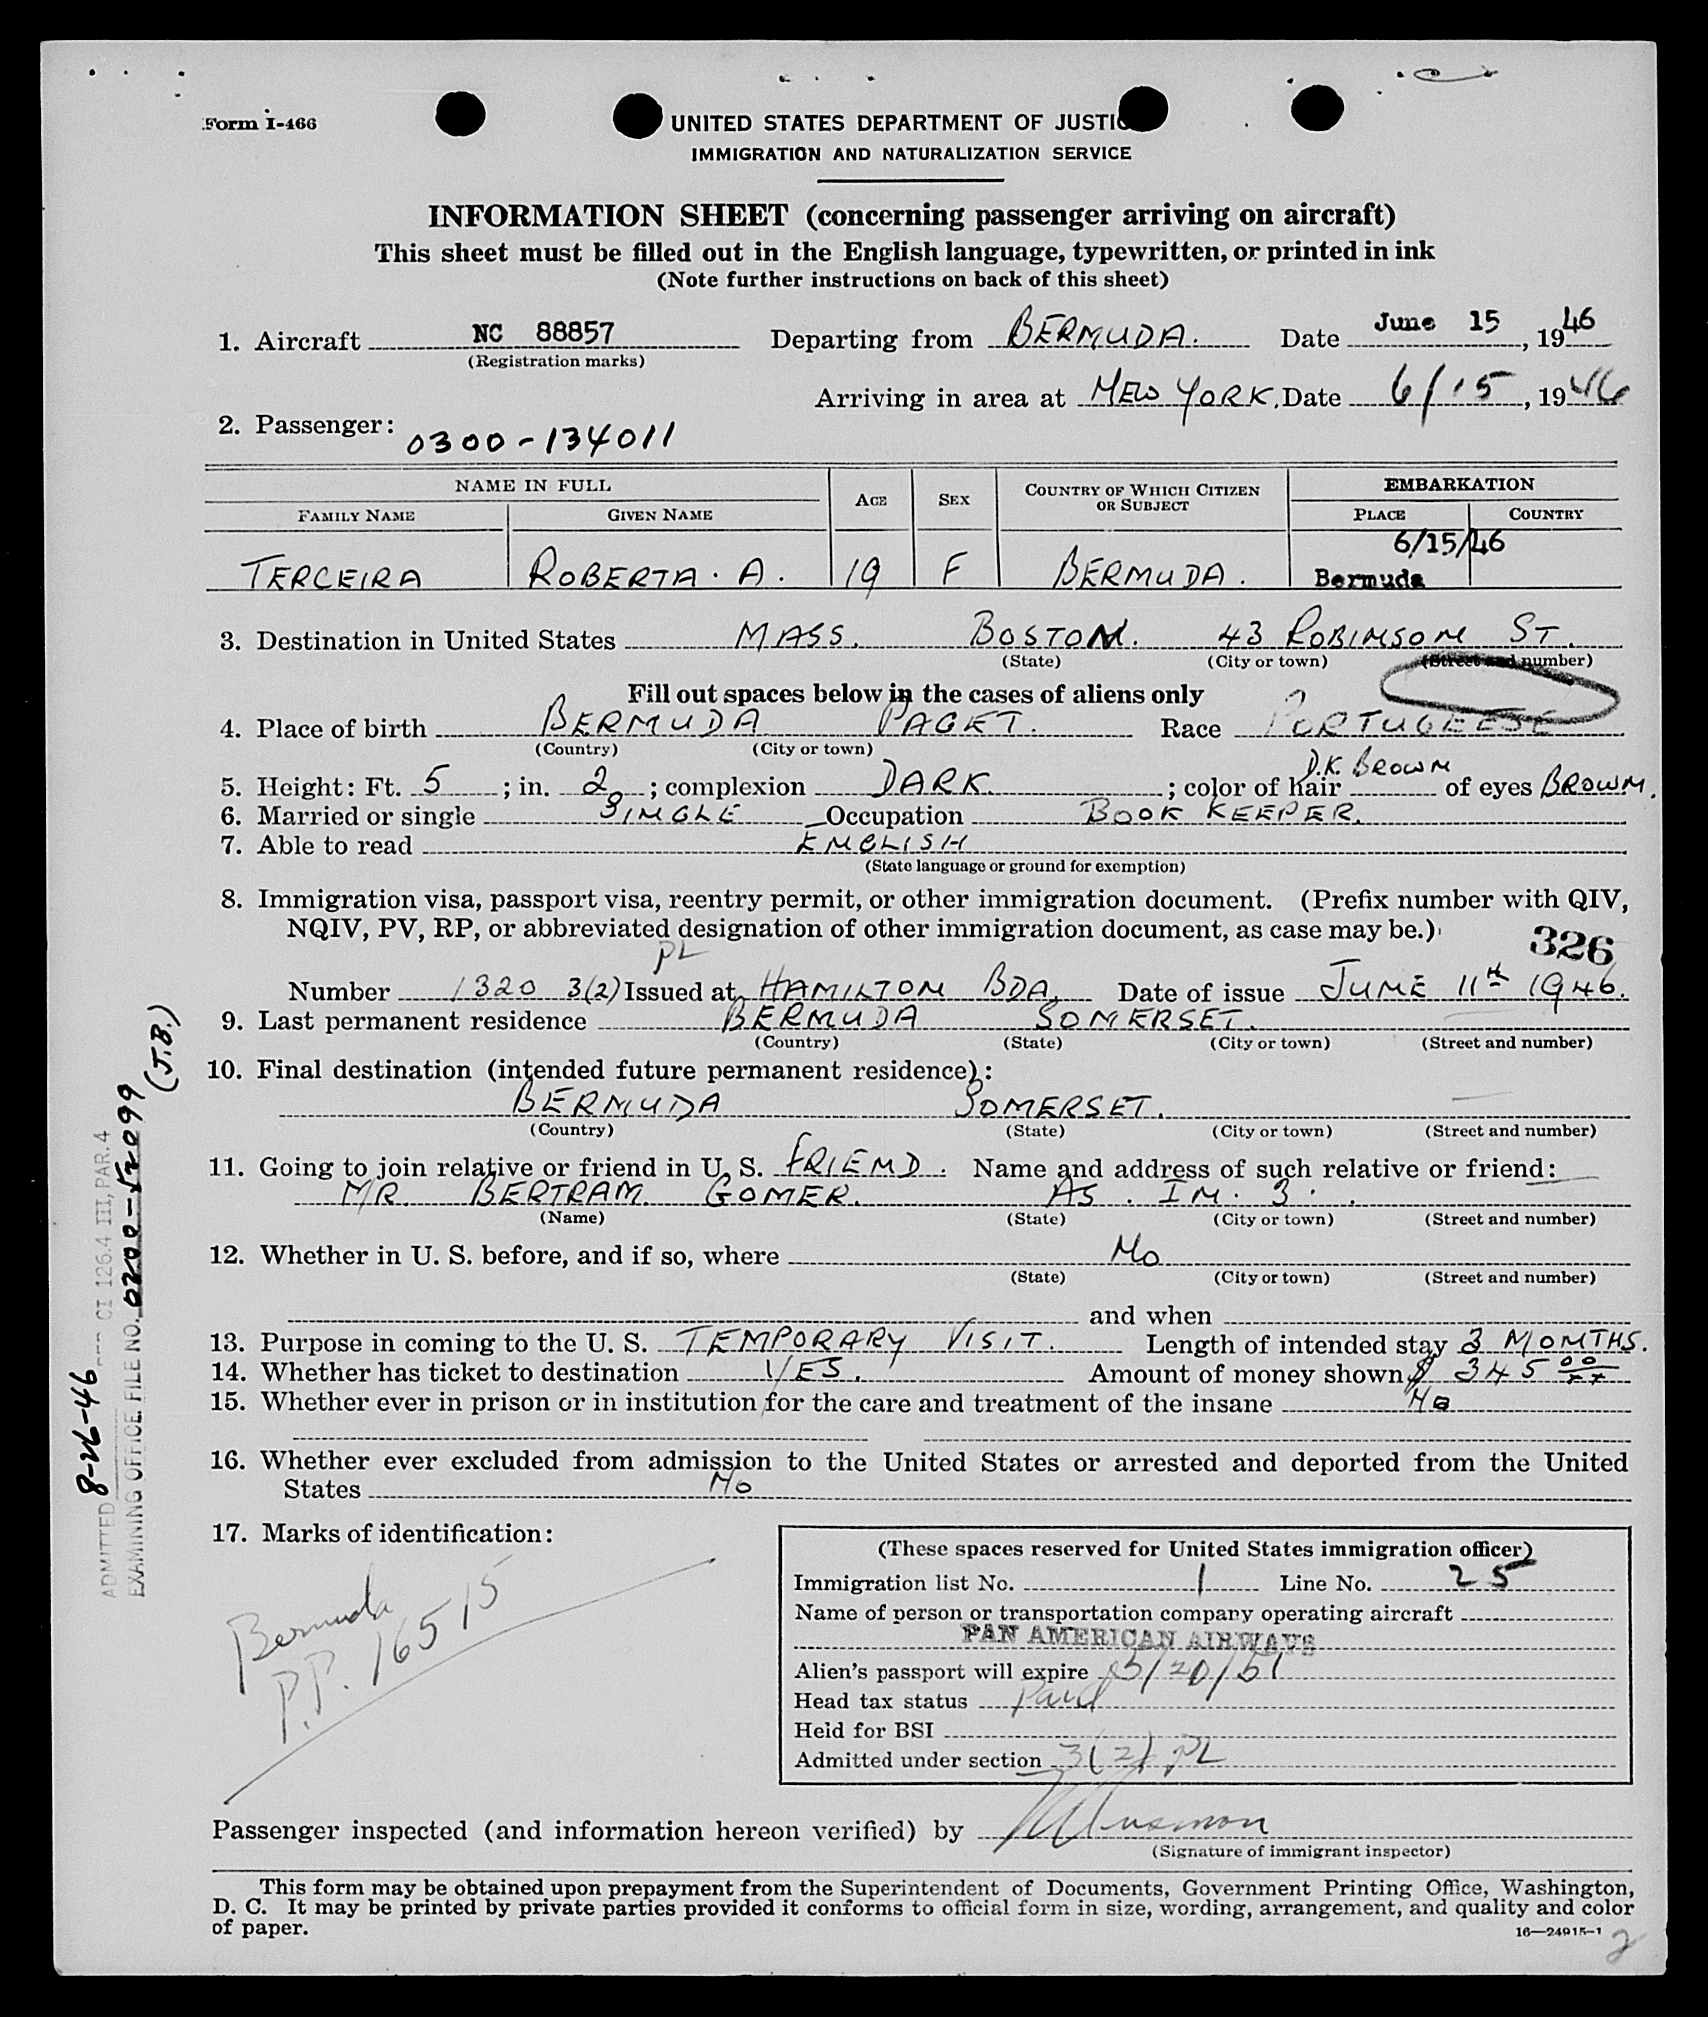 Form I-466
UNITED STATES DEPARTMENT OF JUSTIC
IMMIGRATION AND NATURALIZATION SERVICE
INFORMATION SHEET (concerning passenger arriving on aircraft)
This sheet must be filled out in the English language, typewritten, or printed in ink
(Note further instructions on back of this sheet)
1. Aircraft NC 88857 Departing from BERMUDA. Date June 15, 1946
(Registration marks)
Arriving in area at NEW YORK. Date 6/15, 1946
2. Passenger: 0300-134011
NAME IN FULL AGE SEX COUNTRY OF WHICH CITIZEN OR SUBJECT EMBARKATION
FAMILY NAME GIVEN NAME PLACE COUNTRY
6/15/46
TERCEIRA ROBERTA. A. 19 F BERMUDA. Bermuda
3. Destination in United States MASS. BOSTON. 43 ROBINSON ST.
(State) (City or town) (Street and number)
Fill out spaces below in the cases of aliens only
4. Place of birth BERMUDA PAGET. Race PORTUGEESE
(Country) (City or town)
5. Height: Ft. 5; in. 2; complexion DARK.; color of hair D.K. BROWN of eyes BROWN.
6. Married or single SINGLE Occupation BOOK KEEPER.
7. Able to read ENGLISH
(State language or ground for exemption)
8. Immigration visa, passport visa, reentry permit, or other immigration document. (Prefix number with QIV,
NQIV, PV, RP, or abbreviated designation of other immigration document, as case may be.)
326
PL
Number 1320 3(2) Issued at HAMILTON BDA. Date of issue JUNE 11th 1946.
9. Last permanent residence BERMUDA SOMERSET.
(Country) (State) (City or town) (Street and number)
10. Final destination (intended future permanent residence):
BERMUDA SOMERSET.
(Country) (State) (City or town) (Street and number)
11. Going to join relative or friend in U. S. FRIEND. Name and address of such relative or friend:
MR. BERTRAM GOMER. AS. IN. 3.
(Name) (State) (City or town) (Street and number)
12. Whether in U. S. before, and if so, where No
(State) (City or town) (Street and number)
and when
13. Purpose in coming to the U. S. TEMPORARY VISIT. Length of intended stay 3 MONTHS.
14. Whether has ticket to destination YES. Amount of money shown $ 345 00/xx
15. Whether ever in prison or in institution for the care and treatment of the insane No
16. Whether ever excluded from admission to the United States or arrested and deported from the United
States No
17. Marks of identification:
Bermuda
P.P. 16515
(These spaces reserved for United States immigration officer)
Immigration list No. 1 Line No. 25
Name of person or transportation company operating aircraft
PAN AMERICAN AIRWAYS
Alien's passport will expire 5/20/51
Head tax status Paid
Held for BSI
Admitted under section 3(2) PL
Passenger inspected (and information hereon verified) by
(Signature of immigrant inspector)
This form may be obtained upon prepayment from the Superintendent of Documents, Government Printing Office, Washington,
D. C. It may be printed by private parties provided it conforms to official form in size, wording, arrangement, and quality and color
of paper.
16—24915-1
2
ADMITTED 8-26-46 --- CI 126.4 III, PAR. 4
EXAMINING OFFICE FILE NO. 0200-52099
(J.B.)